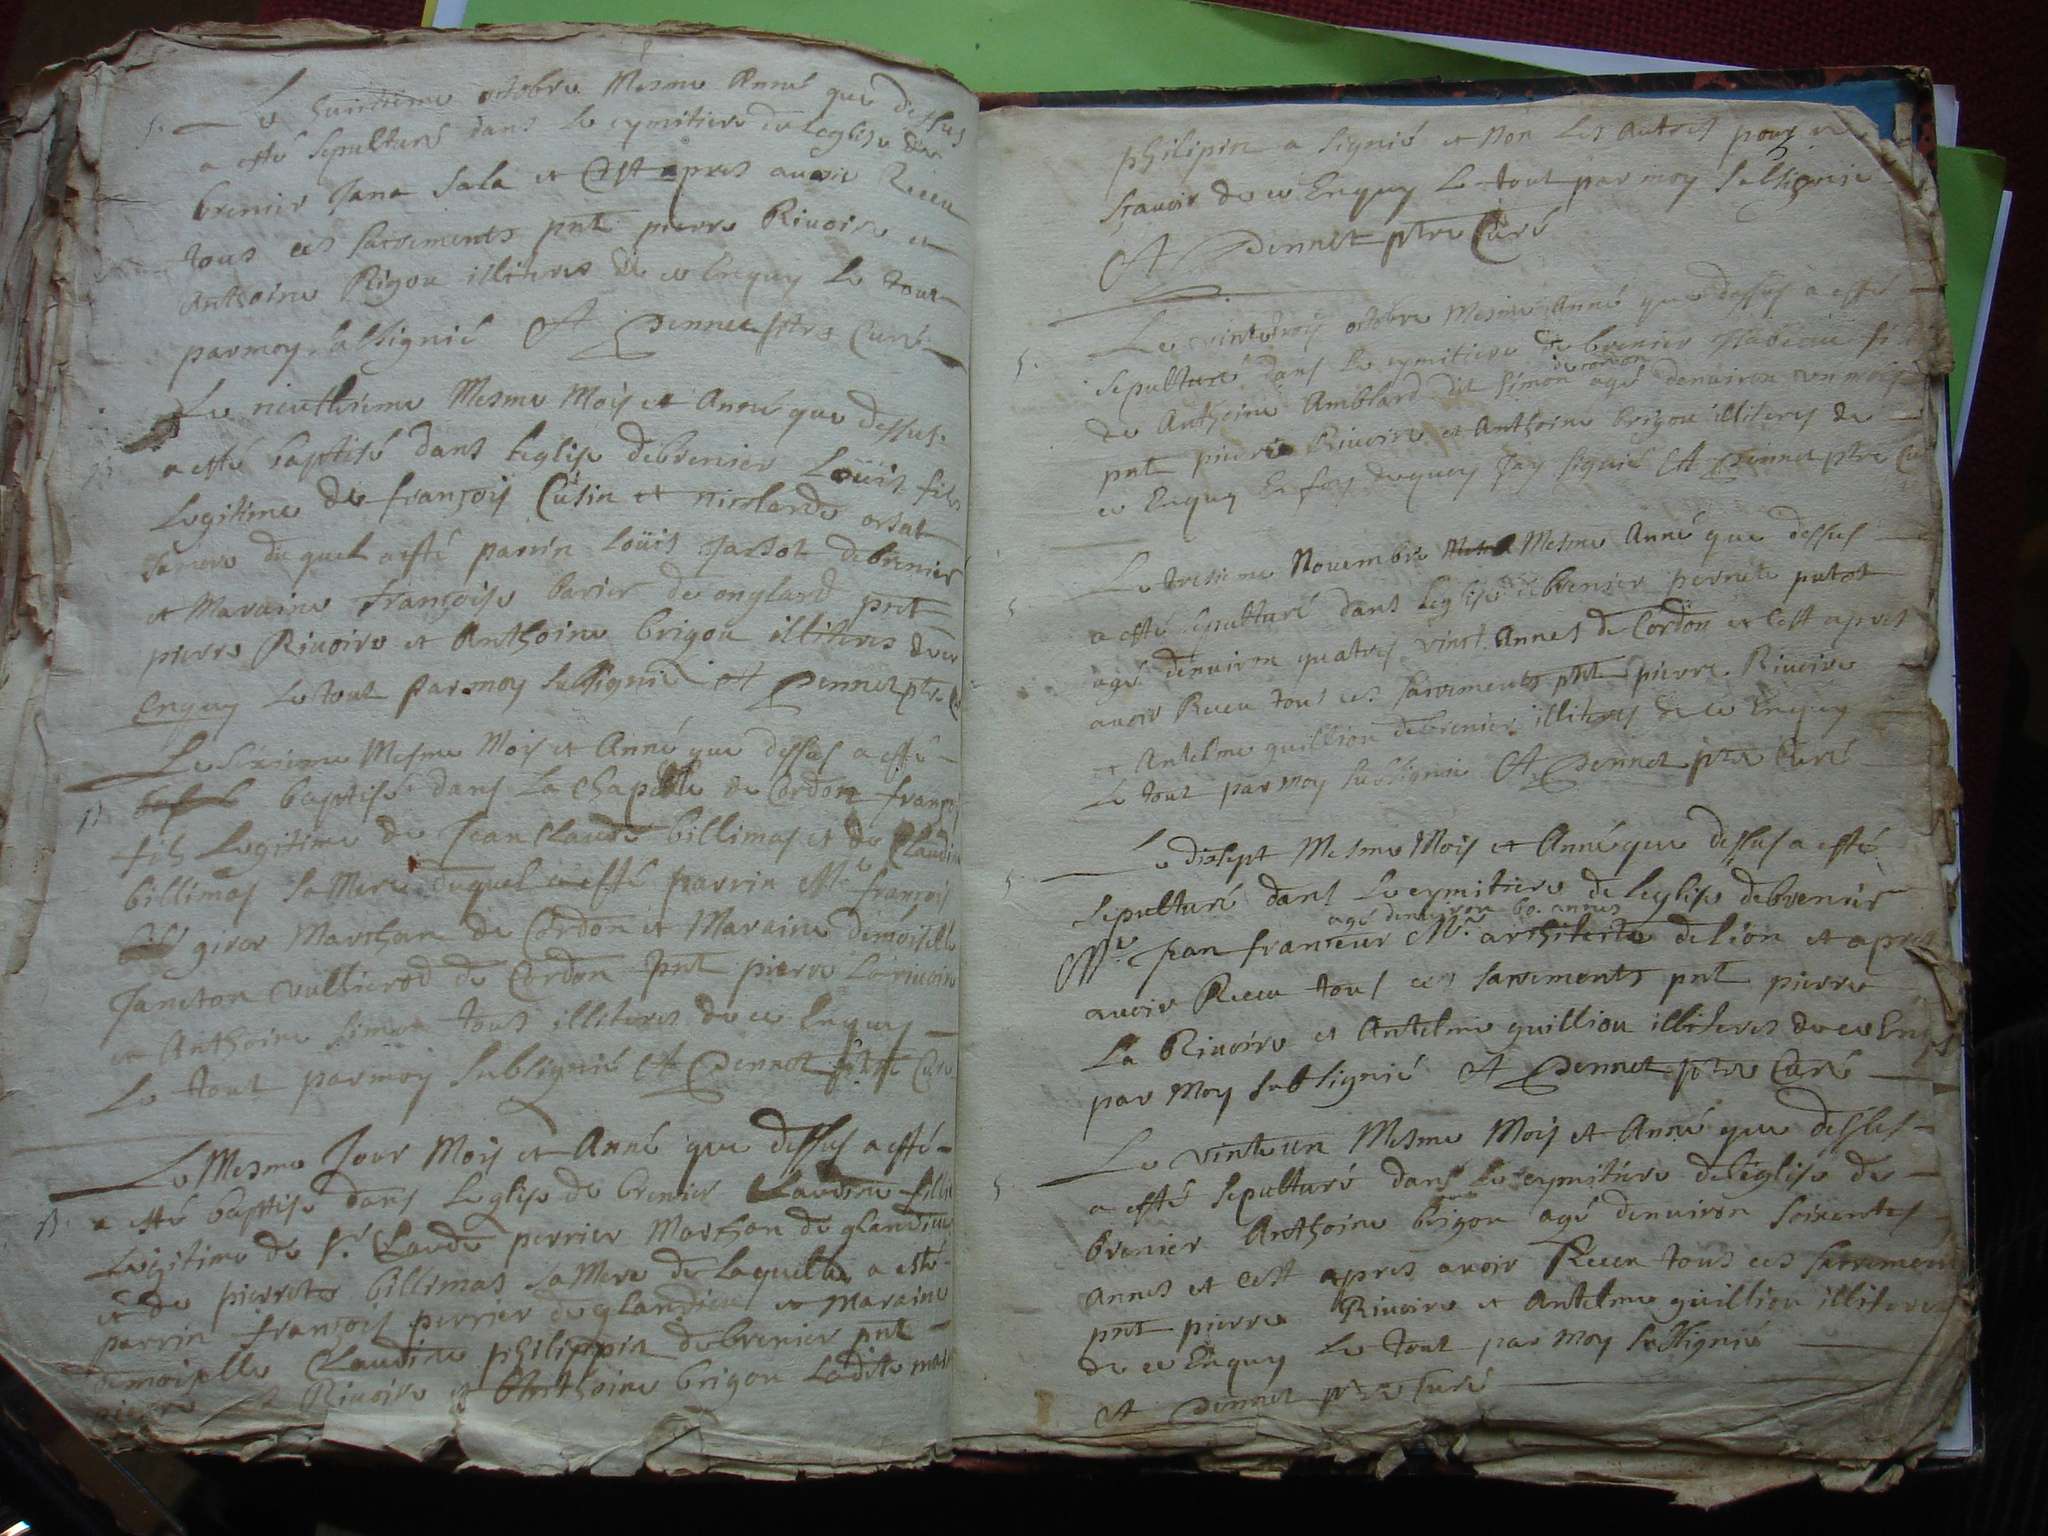 s. Le huictieme octobre Mesme Anné que dessus
a esté sepulturé dans le cymitiere de leglise de
brenier Jana Sala et c'est apres auoir Receu
tous ces sacrements pnt pierre Riuoire et
Anthoine Rigou illiteres de ce Enquy le tout
par moy sabsigné A Dennet ptre Curé
Le neufiesme Mesme Mois et Anné que dessus
a esté baptisé dans leglise debrenier Loüis fils
Legitime de françois Cusin et nicolarde orsat
sa mere du quel a esté parrin Loüis Jarsot debrenier
et Maraine françoise barier de onglard pnt
pierre Riuoire et Anthoine brigou illiteres de ce
Enquy Le tout par moy subsignié A Dennet ptre
Le sixieme Mesme Mois et Anné que dessus a esté
baptisé dans La Chapelle de Cordon françois
fils Legitime de Jean Claude billimas et de Claudine
billimas sa Mere duquel a esté parrin Mre françois
giror Marchan de Cordon et Maraine demoiselle
Janeton vullierod de Cordon pnt pierre Lariuoire
et Anthoine simon tous illiteres de ce Enquy
Le tout par moy subsignié A Dennet ptre Curé
Le Mesme Jour Mois et Anné que dessus a esté
a esté baptise dans Leglise de brenier Claudine fillie
Legitime de sr Claude perrier Marchan de glandieu
et de pierrete billimas sa Mere de Laquelle a esté
parrin françois perrier de glandieu et maraine
demoiselle Claudine philippin debrenier pnt
pierre La Riuoire et Anthoine brigou Ladite mar
philipin a signié et Non Les Autres pour ne
sçauoir de ce Enquy Le tout par moy subsignié
A Dennet ptre Curé
s. Le vintetrois octobre Mesme Anné que dessus a esté
sepulturé dans le cymitiere de brenier Isabeau fille
de cordon
de Anthoine Amblard dit simon agé denuiron un mois
pnt pierre Riuoire et Anthoine brigou illiteres de
ce Enquy En foy dequoy Jay signié A Dennet ptre Cu
s Le tresieme Nouembre Mesme Anné que dessus
a esté sepulturé dans Leglise debrenier pernete putot
agé denuiron quatres vint Annes de Cordon et c'est apres
auoir Receu tous ces sacrements pnt pierre Riuoire
et Antelme guilliou debrenier illiteres de ce Enquy
Le tout par moy subsignié A Dennet ptre Curé
s. Le disept Mesme Mois et Anné que dessus a esté
sepulturé dans Le cymitiere de Leglise debrenier
agé denuiron 60. annes
Mre Jean franceur Mre architecte de Lion et apres
auoir Receu tous ces sacrements pnt pierre
La Riuoire et Antelme guilliou illiteres de ce Enq
par Moy subsignié A Dennet ptre Curé
s. Le vinteun Mesme Mois et Anné que dessus
a esté sepulturé dans Le cymitiere de leglise de
brenier Anthoine brigou agé denuiron soixentes
Annes et c'est apres auoir Receu tous ces sacrements
pnt pierre Riuoire et Antelme guilliou illiteres
de ce Enquy Le tout par moy subsignié
A Dennet ptre Curé